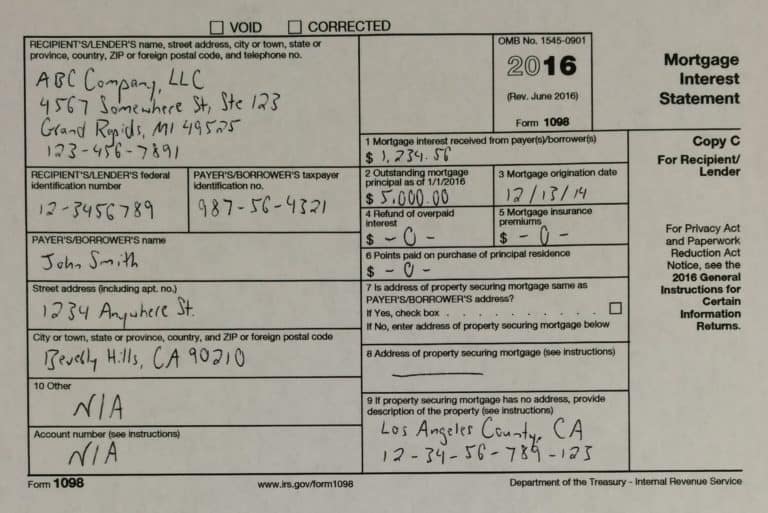 VOID CORRECTED
RECIPIENT'S/LENDER'S name, street address, city or town, state or
province, country, ZIP or foreign postal code, and telephone no.
ABC Company, LLC
4567 Somewhere St, Ste 123
Grand Rapids, MI 49525
123-456-7891
OMB No. 1545-0901
2016
(Rev. June 2016)
Form 1098
Mortgage
Interest
Statement
1 Mortgage interest received from payer(s)/borrower(s)
$ 1,234.56
Copy C
For Recipient/
Lender
RECIPIENT'S/LENDER'S federal
identification number
12-3456789
PAYER'S/BORROWER'S taxpayer
identification no.
987-56-4321
2 Outstanding mortgage
principal as of 1/1/2016
$ 5,000.00
3 Mortgage origination date
12/13/14
4 Refund of overpaid
interest
$ -0-
5 Mortgage insurance
premiums
$ -0-
PAYER'S/BORROWER'S name
John Smith
6 Points paid on purchase of principal residence
$ -0-
Street address (including apt. no.)
1234 Anywhere St.
7 Is address of property securing mortgage same as
PAYER'S/BORROWER'S address?
If Yes, check box . . . . . . . . . . .
If No, enter address of property securing mortgage below
City or town, state or province, country, and ZIP or foreign postal code
Beverly Hills, CA 90210
8 Address of property securing mortgage (see instructions)
10 Other
N/A
9 If property securing mortgage has no address, provide
description of the property (see instructions)
Los Angeles County, CA
12-34-56-789-123
Account number (see instructions)
N/A
For Privacy Act
and Paperwork
Reduction Act
Notice, see the
2016 General
Instructions for
Certain
Information
Returns.
Form 1098 www.irs.gov/form1098 Department of the Treasury - Internal Revenue Service